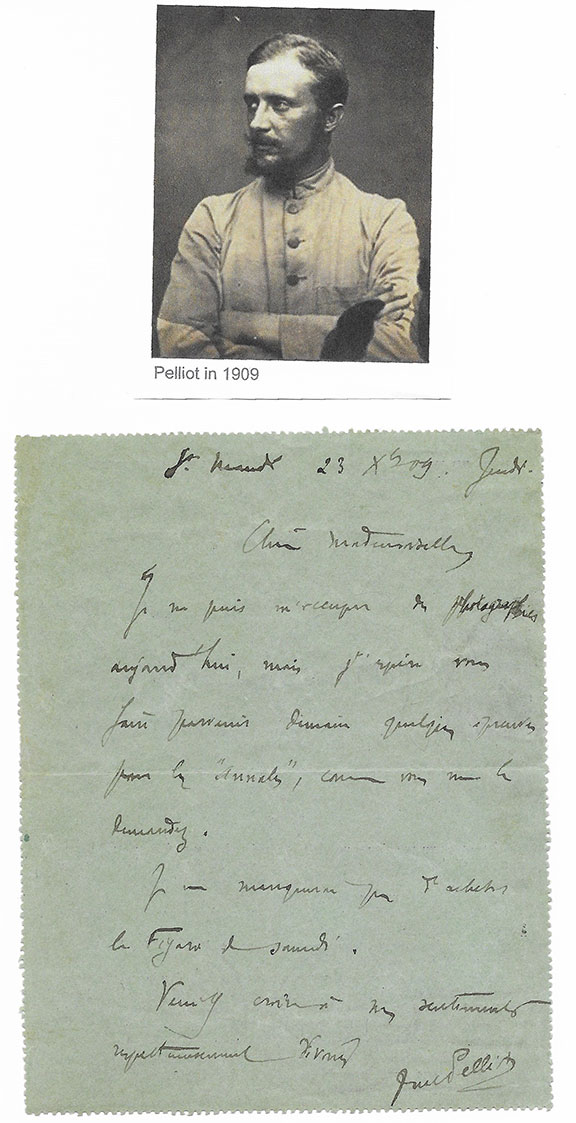 Pelliot in 1909
St Mandé 23 Xbre 09. Jeudi.
Chère Mademoiselle,
Je ne puis m'occuper des photographies
aujourd'hui, mais j'espère vous
faire parvenir demain quelques épreuves
pour les "Annales", comme vous me le
demandez.
Je ne manquerai pas d'acheter
le Figaro de samedi.
Veuillez croire à mes sentiments
respectueusement dévoués
Paul Pelliot